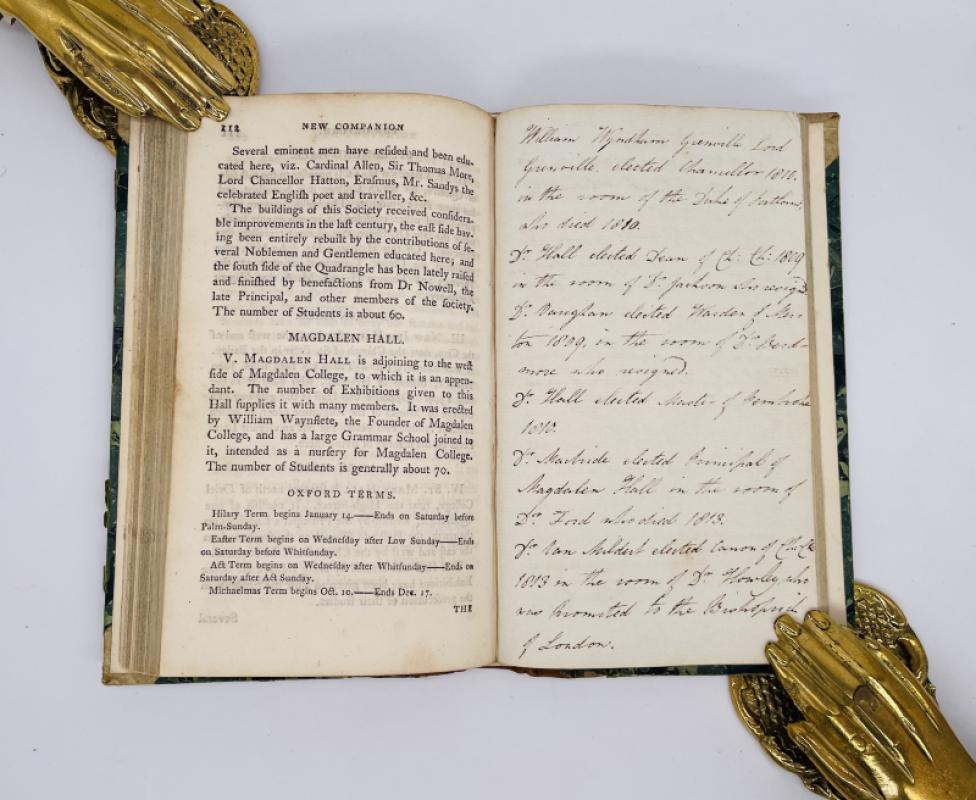 112 NEW COMPANION
Several eminent men have reſided and been edu-
cated here, viz. Cardinal Allen, Sir Thomas More,
Lord Chancellor Hatton, Eraſmus, Mr. Sandys the
celebrated Engliſh poet and traveller, &c.
The buildings of this Society received conſidera-
ble improvements in the laſt century, the eaſt ſide hav-
ing been entirely rebuilt by the contributions of ſe-
veral Noblemen and Gentlemen educated here; and
the ſouth ſide of the Quadrangle has been lately raiſed
and finiſhed by benefactions from Dr Nowell, the
late Principal, and other members of the ſociety.
The number of Students is about 60.
MAGDALEN HALL.
V. MAGDALEN HALL is adjoining to the weſt
ſide of Magdalen College, to which it is an appen-
dant. The number of Exhibitions given to this
Hall ſupplies it with many members. It was erected
by William Waynflete, the Founder of Magdalen
College, and has a large Grammar School joined to
it, intended as a nurſery for Magdalen College.
The number of Students is generally about 70.
OXFORD TERMS.
Hilary Term begins January 14.——Ends on Saturday before
Palm-Sunday.
Eaſter Term begins on Wedneſday after Low Sunday——Ends
on Saturday before Whitſunday.
Act Term begins on Wedneſday after Whitſunday——Ends on
Saturday after Act Sunday.
Michaelmas Term begins Oct. 10.——Ends Dec. 17.
THE
William Wyndham Grenville Lord
Grenville, elected Chancellor 1810.
in the room of the Duke of Portland,
who died 1809.
Dr. Hall elected Dean of Ch: Ch: 1809
in the room of Dr. Jackson who resign'd
Dr. Vaughan elected Warden of Mer-
ton 1809, in the room of Dr. Berd-
more who resigned.
Dr. Hall elected Master of Pembroke
1810.
Dr. Macbride elected Principal of
Magdalen Hall in the room of
Dr. Ford who died 1813.
Dr. Van Mildert elected Canon of Ch: Ch:
1813 in the room of Dr. Howley, who
was promoted to the Bishoprick
of London.